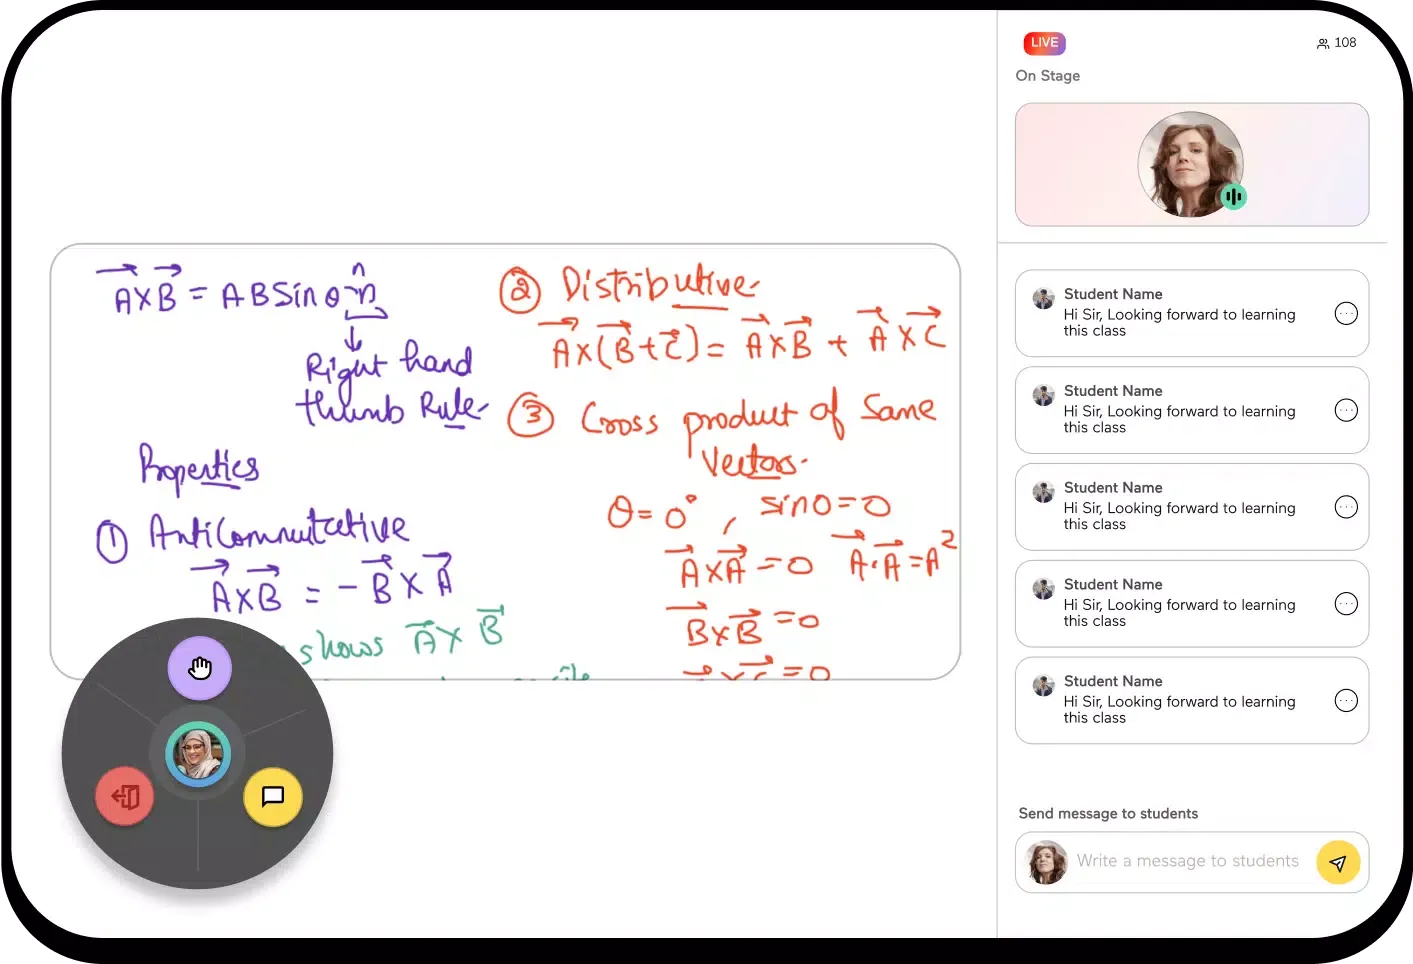 A×B = ABSinθ n̂
Right hand
thumb Rule
Properties
① Anticommutative
A×B = -B×A
shows A× B
② Distributive
A×(B+C) = A×B + A×C
③ Cross product of Same
Vectors.
θ = 0°, sinθ=0
A×A =0 A·A =A²
B×B =0
=0
LIVE
108
On Stage
Student Name
Hi Sir, Looking forward to learning
this class
Student Name
Hi Sir, Looking forward to learning
this class
Student Name
Hi Sir, Looking forward to learning
this class
Student Name
Hi Sir, Looking forward to learning
this class
Student Name
Hi Sir, Looking forward to learning
this class
Send message to students
Write a message to students